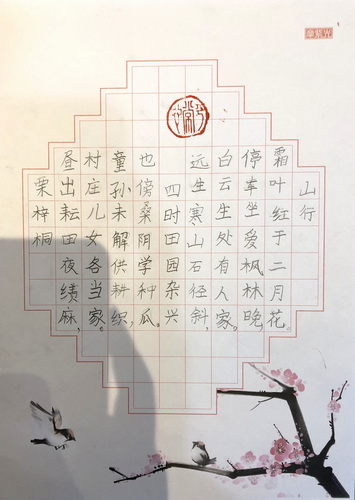 山行
霜叶红于二月花。
停车坐爱枫林晚,
白云生处有人家。
远生寒山石径斜,
四时田园杂兴
也傍桑阴学种瓜。
童孙未解供耕织,
村庄儿女各当家。
昼出耘田夜绩麻,
栗梓桐